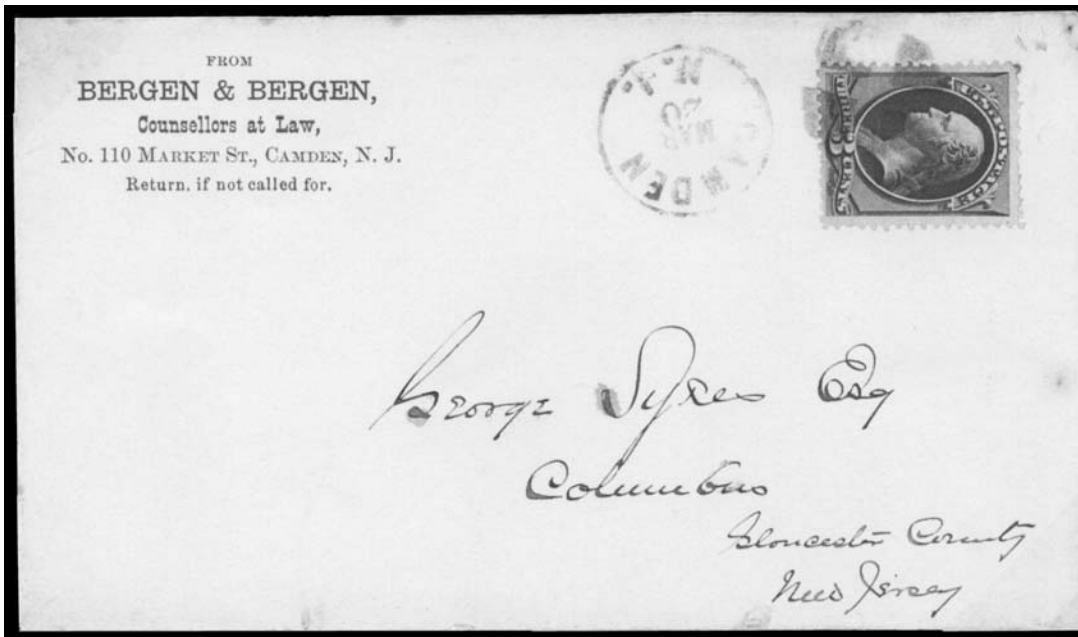 FROM
BERGEN & BERGEN,
Counsellors at Law,
No. 110 MARKET ST., CAMDEN, N. J.
Return, if not called for.
CAMDEN
MAR
20
N.J.
U.S. POSTAGE
THREE CENTS
George Sykes Esq
Columbus
Gloucester County
New Jersey